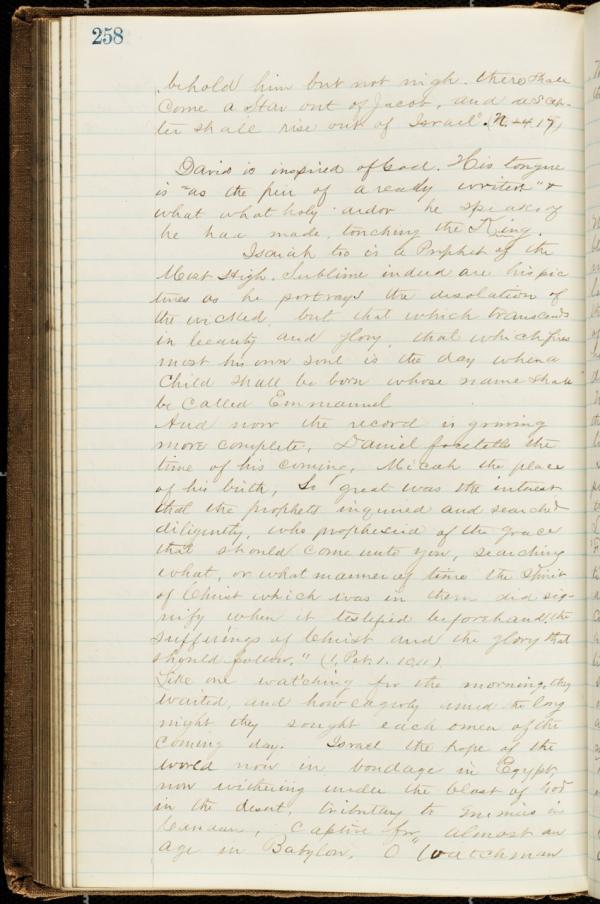 258
behold him but not nigh. there shall
Come a Star out of Jacob, and a Scep-
ter shall rise out of Israel". (N. 24.17)
David is inspired of God. His tongue
is "as the pen of a ready writer" &
what what holy ardor he speaks of
he had made, touching the King.
Isaiah too is a Prophet of the
Most High. Sublime indeed are his pic
tures as he portrays the desolation of
the wicked, but that which transcends
in beauty and glory, that which fires
most his own soul is the day when a
Child shall be born whose name shall
be Called Emmanuel
And now the record is growing
more complete, Daniel foretells the
time of his coming, Micah the place
of his birth, So great was the interest
that the prophets inquired and searched
diligently, who prophesied of the grace
that should come unto you, searching
what, or what manner of time the Spirit
of Christ which was in them did sig-
nify when it testified beforehand the
sufferings of Christ and the glory that
should follow." (1. Pet. 1. 10,11)
Like one watching for the morning, they
waited, and how eagerly amid the long
night they sought each omen of the
Coming day. Israel the hope of the
world now in bondage in Egypt,
now withering under the blast of God
in the desert, tributary to Enemies in
Canaan, Captive for almost an
age in Babylon, O Watchman